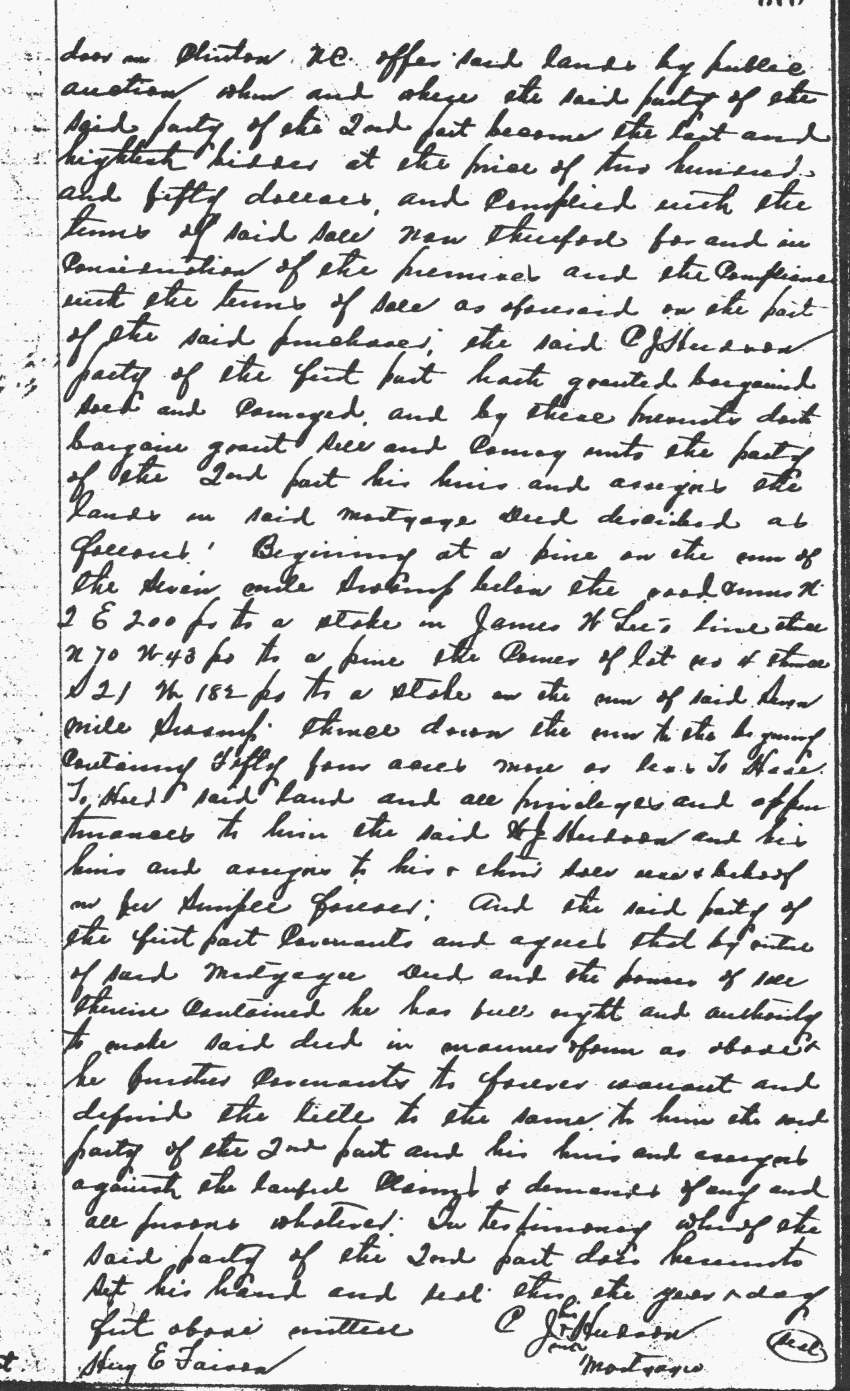 door in Clinton NC. offer said lands by public
auction when and where the said party of the
said party of the 2nd part became the last and
highest bidder at the price of two hundred
and fifty dollars, and complied with the
terms of said sale Now therefore for and in
Consideration of the premises and the Compliance
with the terms of sale as aforesaid on the part
of the said purchaser, the said C J Hudson
party of the first part hath granted bargained
sold and Conveyed, and by these presents doth
bargain grant sell and Convey unto the party
of the 2nd part his heirs and assigns the
lands in said mortgage Deed described as
follows! Begining at a pine on the run of
the Seven mile Swamp below the road & runs N
2 E 200 po to a stake in James W Lee's line thence
N 70 W 43 po to a pine the Corner of lot no 4 thence
S 21 W 182 po to a stake on the run of said Seven
mile Swamp thence down the run to the begining
Containing Fifty four acres more or less To Have
To Hold said land and all privileges and appur
tenances to him the said H J Hudson and his
heirs and assigns to his & their sole use & behoof
in fee Simple forever; And the said party of
the first part Covenants and agrees that by virtue
of said Mortgage Deed and the powers of sale
therein Contained he has full right and authority
to make said deed in manner & form as above &
he further Covenants to forever warrant and
defend the title to the same to him the said
party of the 2nd part and his heirs and assigns
against the lawful Claims & demands of any and
all persons whatever. In testimony whereof the
said party of the 2nd part does hereunto
set his hand and seal this the year & day
first above written C J his x mark Hudson Seal
Hey E Faison Mortgagee